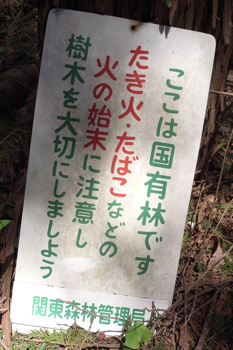 ここは国有林です
たき火・たばこなどの
火の始末に注意し
樹木を大切にしましよう
関東森林管理局